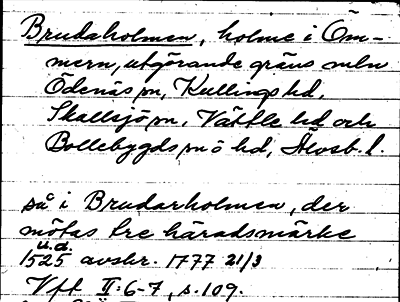 Brudaholmen, holme i Öm-
mern, utgörande gräns mln
Ödenäs sn, Kullings hd,
Skallsjö sn, Vättle hd och
Bollebygds sn o hd, Älvsb. l.
så i Brudarholmen, der
mötas tre häradsmärke
u.d.
1525 avskr. 1777 21/3
Vft II:6-7, s. 109.